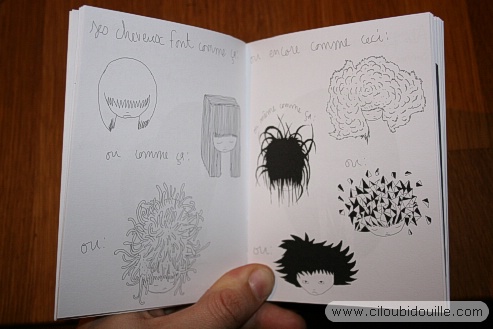 ses cheveux font comme ça:
ou comme ça:
ou:
ou encore comme ceci:
ou même comme ça:
ou:
ou:
www.ciloubidouille.com